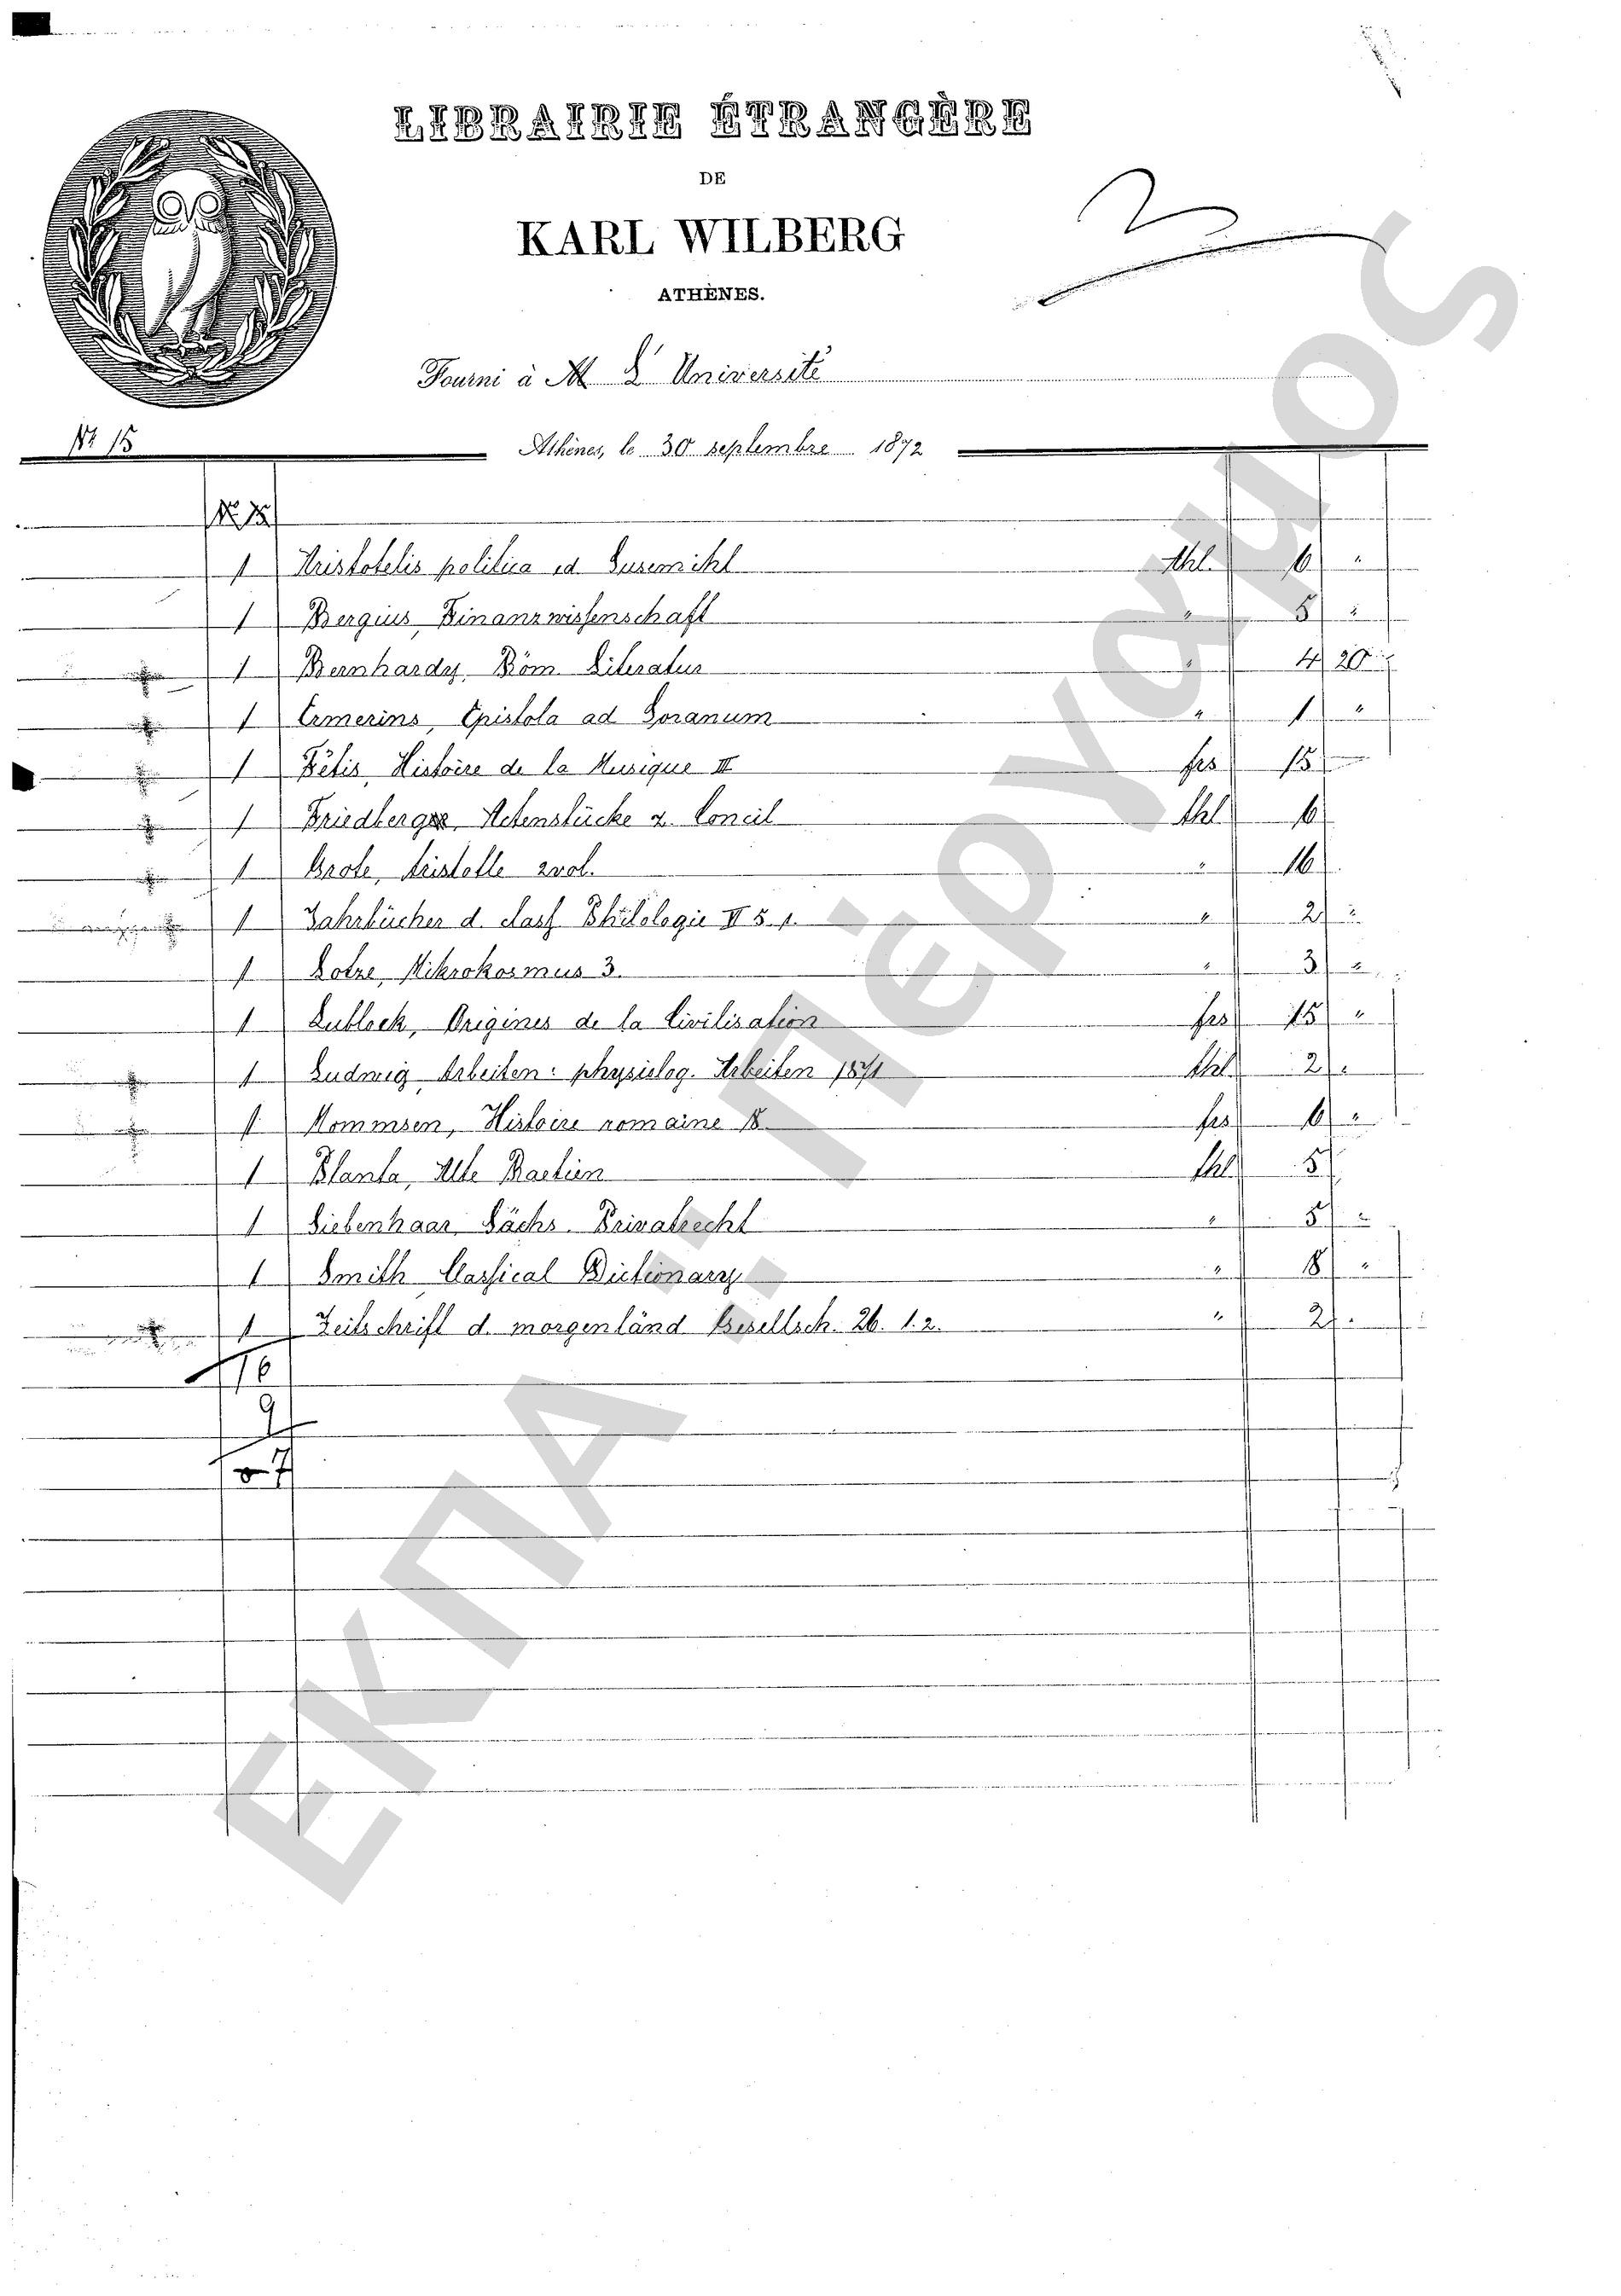 LIBRAIRIE ÉTRANGÈRE
DE
KARL WILBERG
ATHÈNES.
2
Fourni à M L'Université
No 15
Athènes, le 30 septembre 1872
1 Aristotelis politica ed. Susemihl thl. 6 "
1 Bergius, Finanzwissenschaft " 5 "
1 Bernhardy, Röm. Literatur " 4 20
1 Ermerins, Epistola ad Soranum " 1 "
1 Fétis, Histoire de la Musique III frs 15
1 Friedberger, Actenstücke z. Concil thl 6
1 Grote, Aristotle 2 vol. " 16
1 Jahrbücher d. class. Philologie II 5. 1. " 2 "
1 Lotze, Mikrokosmus 3. " 3 "
1 Lubbock, Origines de la Civilisation frs 15 "
1 Ludwig Arbeiten: physiolog. Arbeiten 1871 thl. 2 "
1 Mommsen, Histoire romaine 8. frs 6 "
1 Planta, Alte Raetien thl 5
1 Siebenhaar, Sächs. Privatrecht " 5 "
1 Smith Classical Dictionary " 8 "
1 Zeitschrift d. morgenländ Gesellsch. 26. 1. 2. " 2 "
16
9
7
ΕΚΠΑ .: Πέργαμος